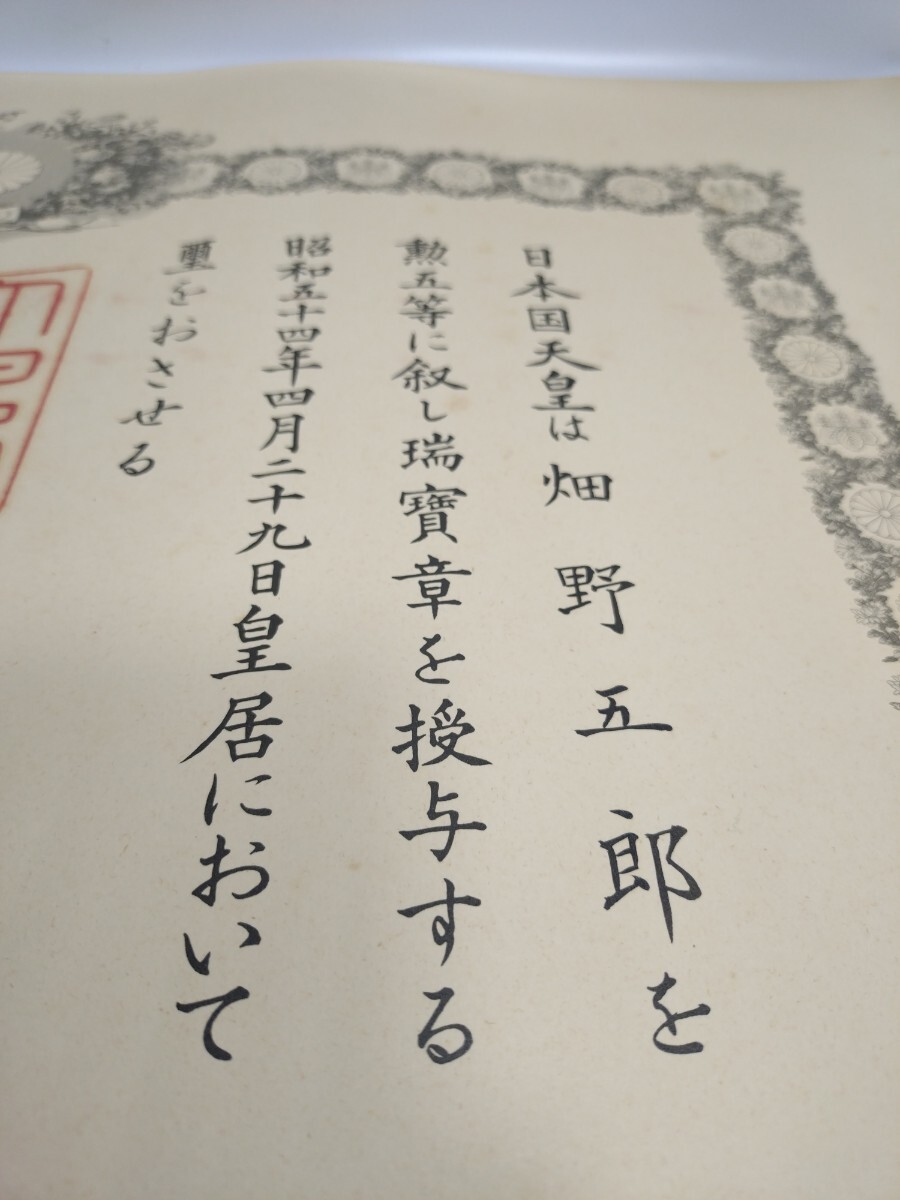 日本国天皇は畑野五郎を
勲五等に叙し瑞寶章を授与する
昭和五十四年四月二十九日皇居において
璽をおさせる